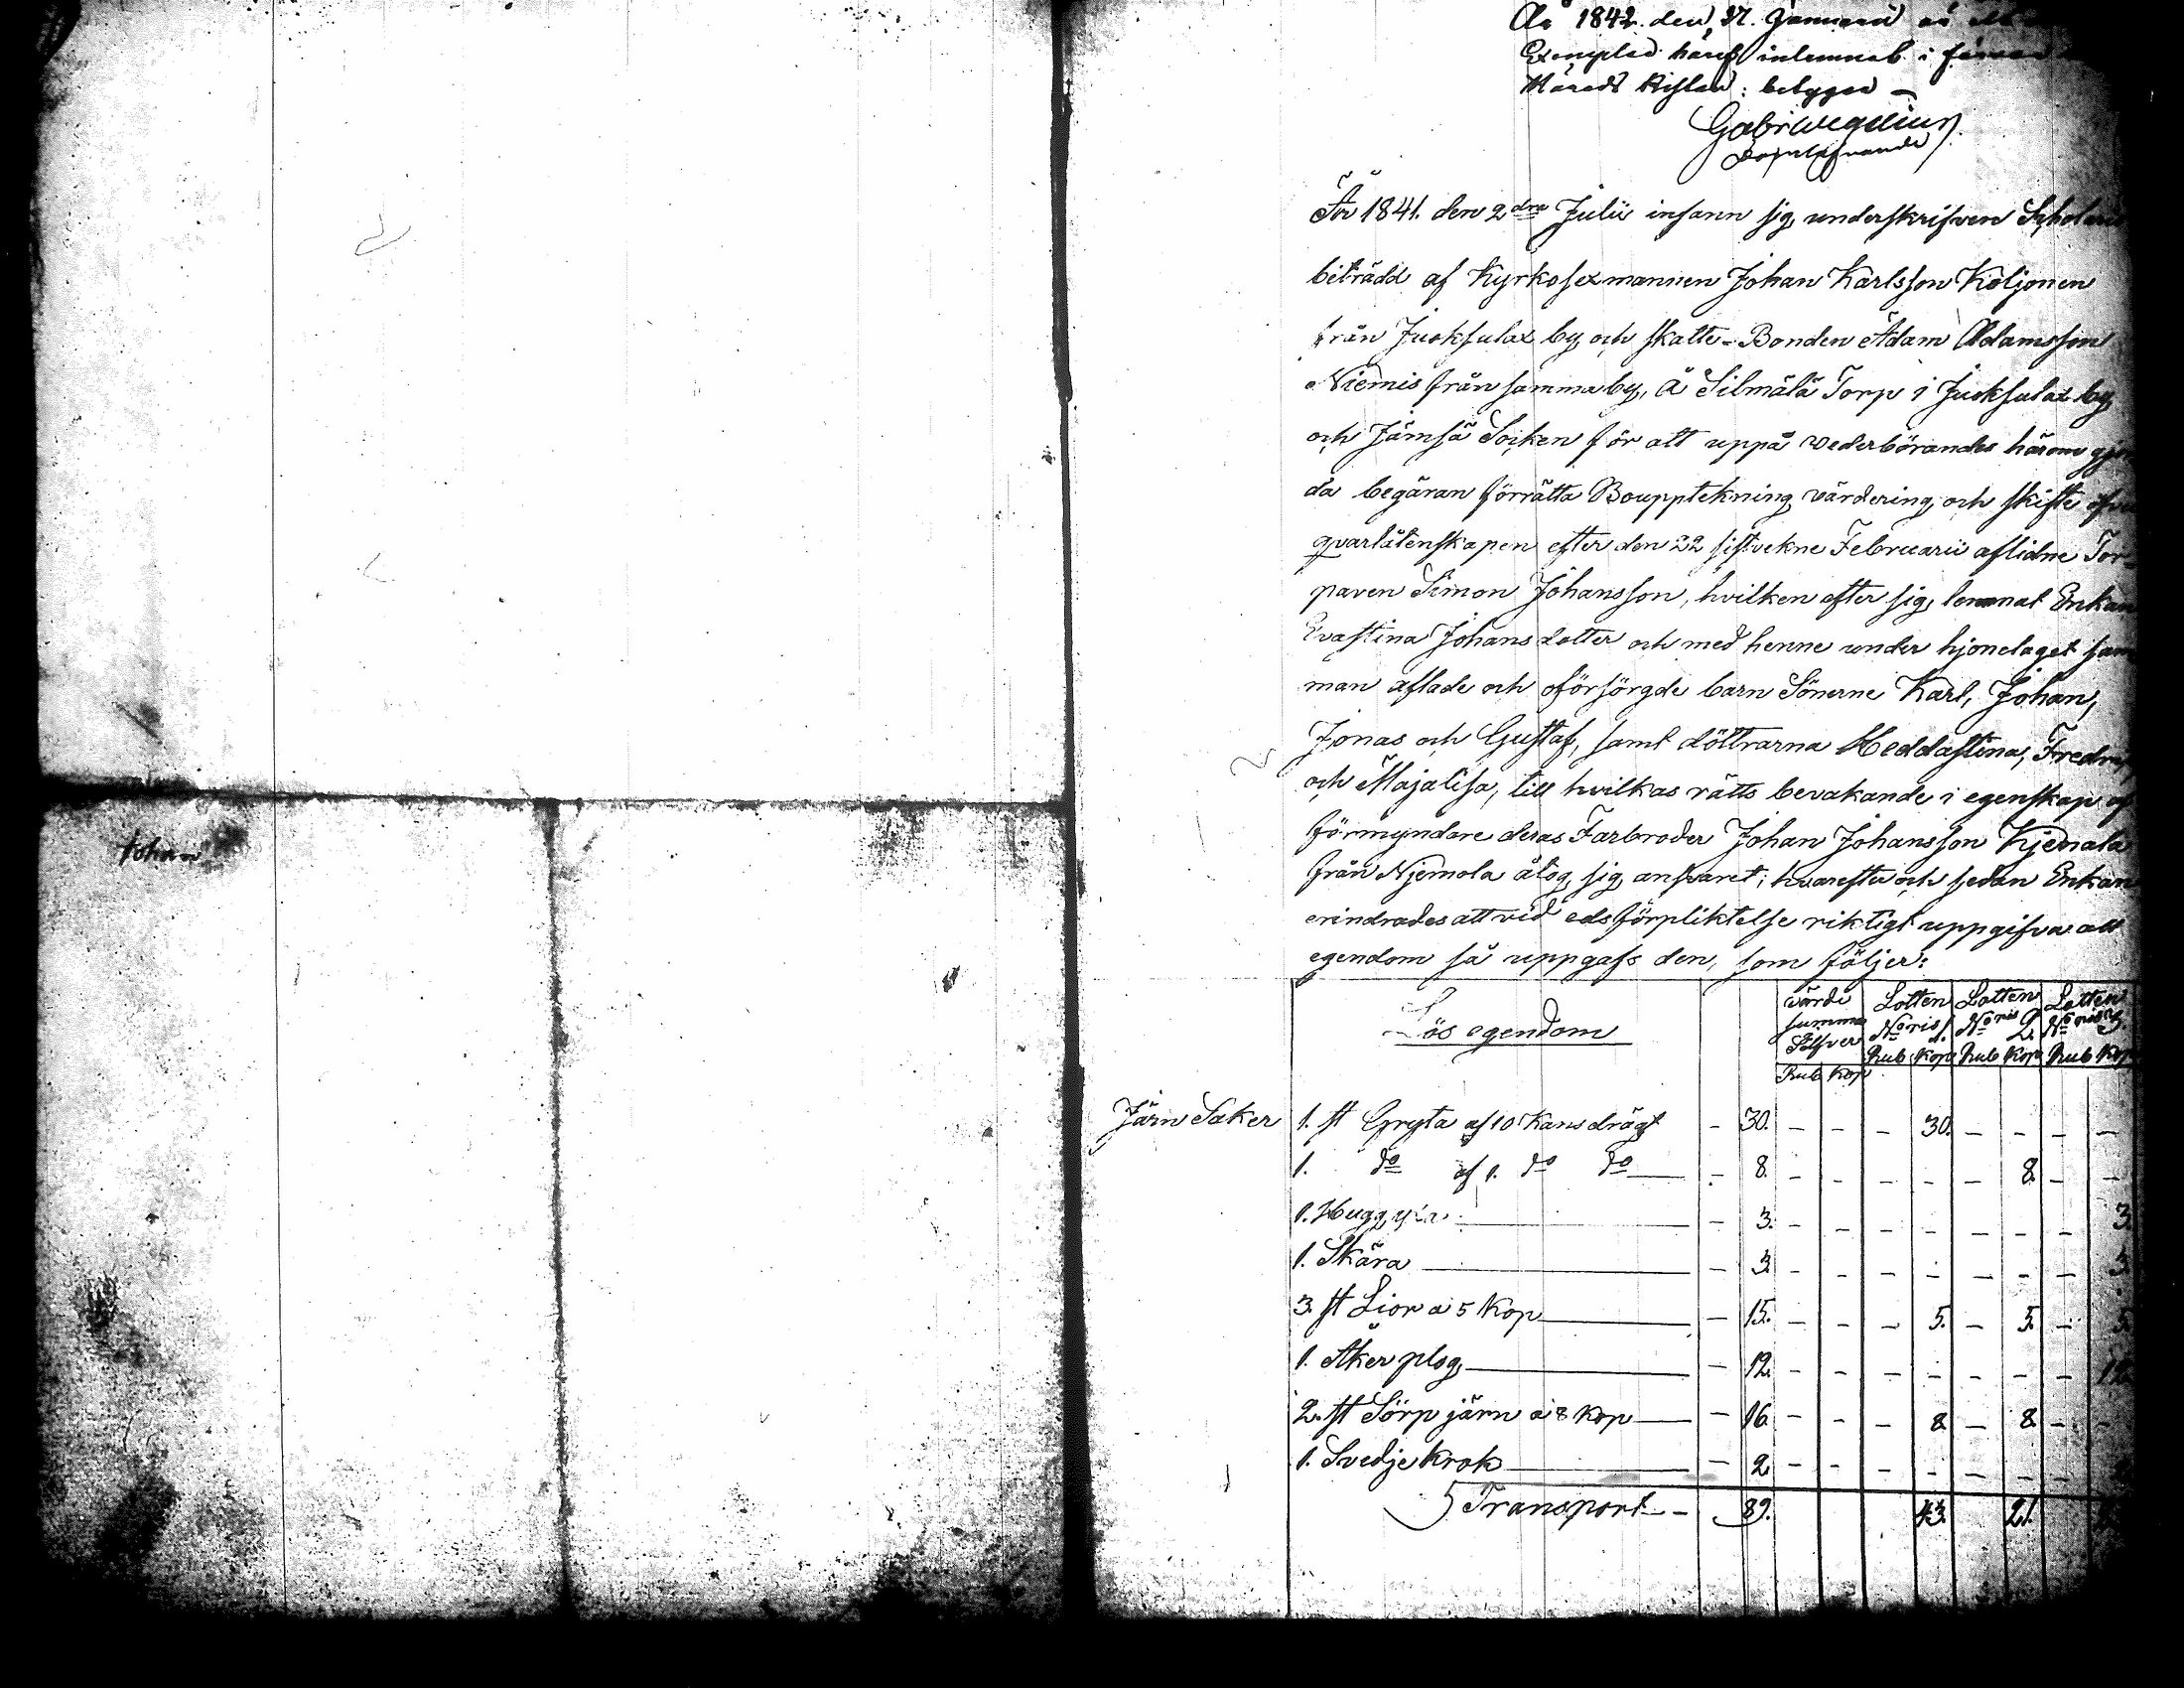 År 1842. den 27. Januarii
Exemplar häraf inlemnat i
Härads Kistan; betygar
Gabr Wegelius
Domhafvande
År 1841. den 2dra Julii infann sig underskrifven
biträdd af Kyrkosexmannen Johan Karlsson Koljonen
från Juoksulax by och skatte-Bonden Adam Adamsson
Niemis från samma by, å Silmälä Torp i Juoksulax by
och Jämsä Socken för att uppå wederbörandes härom
da begäran förrätta Bouppteckning, värdering och skifte
qvarlåtenskapen efter den 22 sistvekne Februarii aflidne Tor-
paren Simon Johansson, hvilken efter sig lemnat Enkan
Evastina Johansdotter och med henne under hjonelaget
man aflade och oförsörgde barn Sönerne Karl, Johan,
Jonas och Gustaf, samt döttrarna Heddastina,
och Majalisa, till hvilkas rätts bevakande i egenskap af
förmyndare deras Farbroder Johan Johansson
från Njemola åtog sig ansvaret; hvarefter och sedan Enkan
erindrades att vid eds förpliktelse riktigt uppgifva all
egendom så uppgafs den, som följer:
Johan
Lös egendom
värde summa Silfver Lotten No ris 1. Lotten No ris 2. Lotten No ris 3
Rub Kop Rub Kop Rub Kop Rub Kop
Järn Saker 1. st Gryta af 10 Kans drägt - 30. - - - 30. - - - -
1. do af 1. do do - 8. - - - - - 8. - -
1. Hugg yxa - 3. - - - - - - - 3.
1. Skära - 3. - - - - - - - 3.
3. st Lior a 5 Kop - 15. - - - 5. - 5. - 5.
1. Åker plog - 12. - - - - - - - 12.
2. st Sörp järn a 8 Kop - 16 - - - 8 - 8. - -
1. Svedje krok - 2 - - - - - - -
Transport - 89. 43. 21.